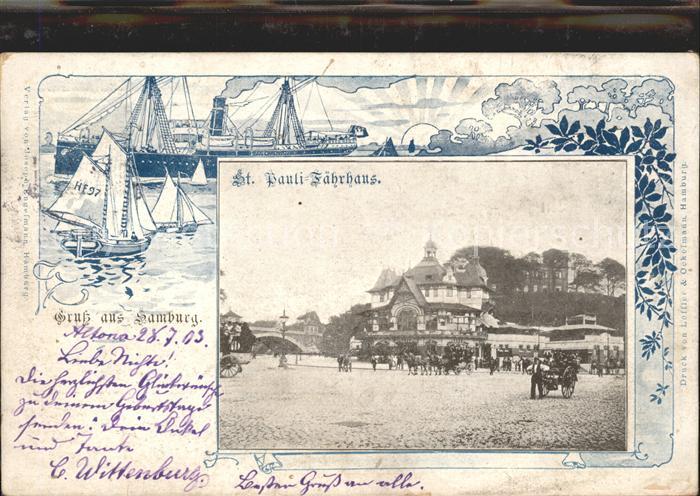 Verlag von Joseph Engelmann, Hamburg.
HF97
St. Pauli-Fährhaus.
Gruß aus Hamburg.
Altona 28.7.03
Liebe Nichte!
Die herzlichsten Glückwünsche
zu deinem Geburtstage
senden: Dein Onkel
und Tante
C. Wittenburg.
Besten Gruß an alle.
Druck von Löffler & Ockelmann, Hamburg.